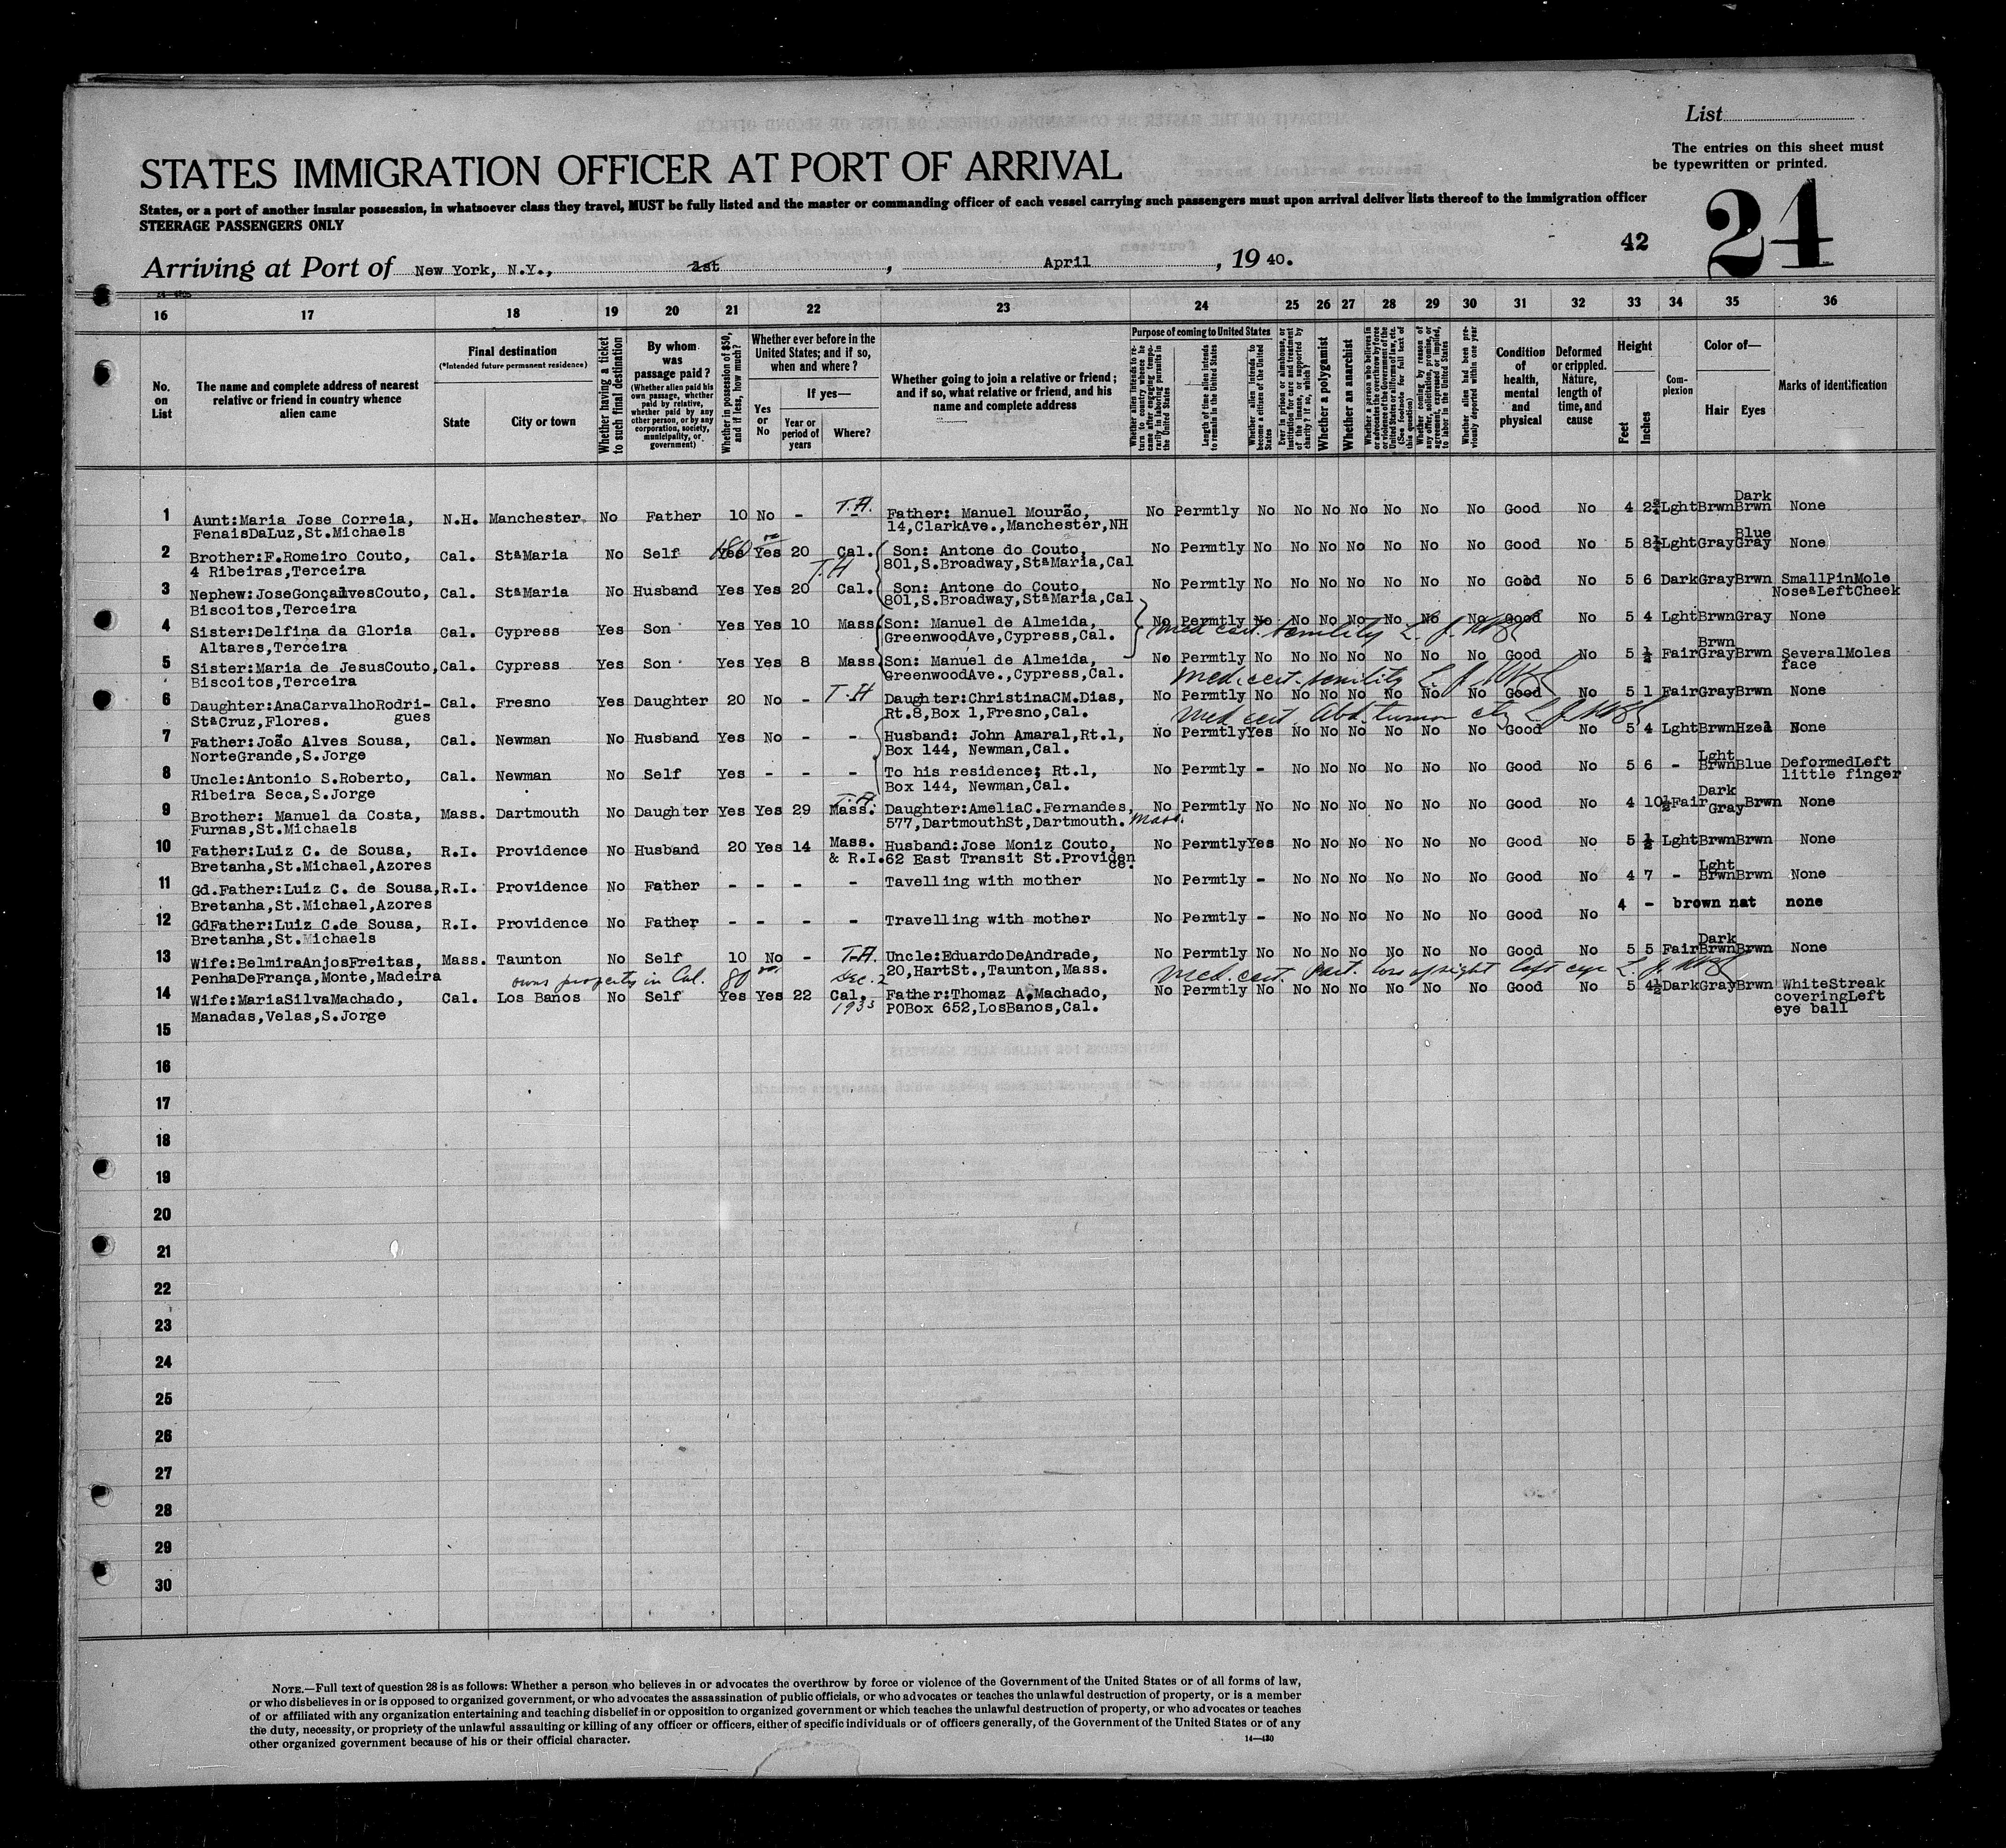 List
The entries on this sheet must
be typewritten or printed.
STATES IMMIGRATION OFFICER AT PORT OF ARRIVAL
24
States, or a port of another insular possession, in whatsoever class they travel, MUST be fully listed and the master or commanding officer of each vessel carrying such passengers must upon arrival deliver lists thereof to the immigration officer
STEERAGE PASSENGERS ONLY
42
Arriving at Port of New York, N.Y., 1st, April, 1940.
16 17 18 19 20 21 22 23 24 25 26 27 28 29 30 31 32 33 34 35 36
No. on List
The name and complete address of nearest relative or friend in country whence alien came
Final destination
(*Intended future permanent residence)
State
City or town
Whether having a ticket to such final destination
By whom was passage paid?
(Whether alien paid his own passage, whether paid by relative, whether paid by any other person, or by any corporation, society, municipality, or government)
Whether in possession of $50, and if less, how much?
Whether ever before in the United States; and if so, when and where?
Yes or No
If yes—
Year or period of years
Where?
Whether going to join a relative or friend; and if so, what relative or friend, and his name and complete address
Purpose of coming to United States
Whether alien intends to return to country whence he came after engaging temporarily in laboring pursuits in the United States
Length of time alien intends to remain in the United States
Whether alien intends to become a citizen of the United States
Ever in prison or almshouse, or institution for care and treatment of the insane, or supported by charity? if so, which?
Whether a polygamist
Whether an anarchist
Whether a person who believes in or advocates the overthrow by force or violence of the Government of the United States or all forms of law, etc. (See footnote for full text of this question)
Whether coming by reason of any offer, solicitation, promise, or agreement, expressed or implied, to labor in the United States
Whether alien had been previously deported within one year
Condition of health, mental and physical
Deformed or crippled. Nature, length of time, and cause
Height
Feet
Inches
Complexion
Color of—
Hair
Eyes
Marks of identification
1 Aunt:Maria Jose Correia, N.H. Manchester No Father 10 No - T.A. Father: Manuel Mourão, No Permtly No No No No No No No Good No 4 2¾ Lght Brwn Dark Brwn None
FenaisDaLuz,St.Michaels 14,ClarkAve.,Manchester,NH
2 Brother:F.Romeiro Couto, Cal. StaMaria No Self Yes 180 Yes 20 Cal. Son: Antone do Couto, No Permtly No No No No No No No Good No 5 8½ Lght Gray Blue Gray None
4 Ribeiras,Terceira T.H 801,S.Broadway,StaMaria,Cal
3 Nephew:JoseGonçalvesCouto, Cal. StaMaria No Husband Yes Yes 20 Cal. Son: Antone do Couto, No Permtly No No No No No No No Good No 5 6 Dark Gray Brwn SmallPinMole
Biscoitos,Terceira 801,S.Broadway,StaMaria,Cal Nose&LeftCheek
4 Sister:Delfina da Gloria Cal. Cypress Yes Son Yes Yes 10 Mass Son: Manuel de Almeida, No Permtly No No No No No No No Good No 5 4 Lght Brwn Gray None
Altares,Terceira GreenwoodAve,Cypress,Cal. Med cert. senility
5 Sister:Maria de JesusCouto, Cal. Cypress Yes Son Yes Yes 8 Mass. Son: Manuel de Almeida, No Permtly No No No No No No No Good No 5 ½ Fair Brwn Gray Brwn SeveralMoles
Biscoitos,Terceira GreenwoodAve.,Cypress,Cal. Med. cert. senility face
6 Daughter:AnaCarvalhoRodri- Cal. Fresno Yes Daughter 20 No - T.H Daughter:ChristinaCM.Dias, No Permtly No No No No No No No Good No 5 1 Fair Gray Brwn None
StaCruz,Flores. gues Rt.8,Box 1,Fresno,Cal. Med cert. Abd. tumor
7 Father:João Alves Sousa, Cal. Newman No Husband Yes No - - Husband: John Amaral,Rt.1, No Permtly Yes No No No No No No Good No 5 4 Lght Brwn Hzel None
NorteGrande,S.Jorge Box 144, Newman,Cal.
8 Uncle:Antonio S.Roberto, Cal. Newman No Self Yes - - - To his residence; Rt.1, No Permtly - No No No No No No Good No 5 6 - Lght Brwn Blue DeformedLeft
Ribeira Seca,S.Jorge Box 144, Newman,Cal. little finger
9 Brother: Manuel da Costa, Mass. Dartmouth No Daughter Yes Yes 29 Mass. T.A. Daughter:AmeliaC.Fernandes, No Permtly No No No No No No No Good No 4 10½ Fair Dark Gray Brwn None
Furnas,St.Michaels 577,DartmouthSt,Dartmouth. Mass.
10 Father:Luiz C. de Sousa, R.I. Providence No Husband 20 Yes 14 Mass. & R.I. Husband:Jose Moniz Couto, No Permtly Yes No No No No No No Good No 5 ½ Lght Brwn Brwn None
Bretanha,St.Michael,Azores 62 East Transit St.Providence.
11 Gd.Father:Luiz C. de Sousa, R.I. Providence No Father - - - - Tavelling with mother No Permtly - No No No No No No Good No 4 7 - Lght Brwn Brwn None
Bretanha,St.Michael,Azores
12 GdFather:Luiz C.de Sousa, R.I. Providence No Father - - - - Travelling with mother No Permtly - No No No No No No Good No 4 - brown nat none
Bretanha,St.Michaels
13 Wife:BelmiraAnjosFreitas, Mass. Taunton No Self 10 No - T.A. Uncle:EduardoDeAndrade, No Permtly No No No No No No No Good No 5 5 Fair Dark Brwn Brwn None
PenhaDeFrança,Monte,Madeira 20,HartSt.,Taunton,Mass.
owns property in Cal. 80 Dec. 2 Med. cert. Part. loss of sight left eye
14 Wife:MariaSilvaMachado, Cal. Los Banos No Self Yes Yes 22 Cal. Father:Thomaz A.Machado, No Permtly No No No No No No No Good No 5 4½ Dark Gray Brwn WhiteStreak
Manadas,Velas,S.Jorge 1933 POBox 652,LosBanos,Cal. coveringLeft
eye ball
15
16
17
18
19
20
21
22
23
24
25
26
27
28
29
30
NOTE.—Full text of question 28 is as follows: Whether a person who believes in or advocates the overthrow by force or violence of the Government of the United States or of all forms of law,
or who disbelieves in or is opposed to organized government, or who advocates the assassination of public officials, or who advocates or teaches the unlawful destruction of property, or is a member
of or affiliated with any organization entertaining and teaching disbelief in or opposition to organized government or which teaches the unlawful destruction of property, or who advocates or teaches
the duty, necessity, or propriety of the unlawful assaulting or killing of any officer or officers, either of specific individuals or of officers generally, of the Government of the United States or of any
other organized government because of his or their official character.
14—430